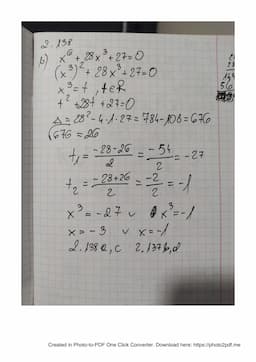 2.138
b) x⁶ + 28x³ + 27 = 0
(x³)² + 28x³ + 27 = 0
x³ = t , t∈R
t² + 28t + 27 = 0
Δ = 28² - 4·1·27 = 784 - 108 = 676
√676 = 26
t₁ = (-28-26)/2 = -54/2 = -27
t₂ = (-28+26)/2 = -2/2 = -1
x³ = -27 ∨ x³ = -1
x = -3 ∨ x = -1
2.138a, c 2.137b, d
Created in Photo-to-PDF One Click Converter. Download here: https://photo2pdf.me